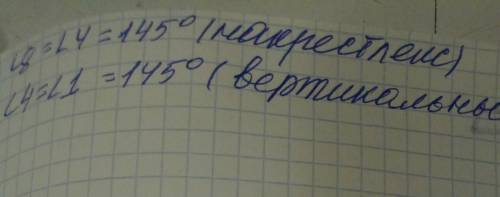 ∠8=∠4=145° (накрестлежс)
∠4=∠1=145° (вертикальны